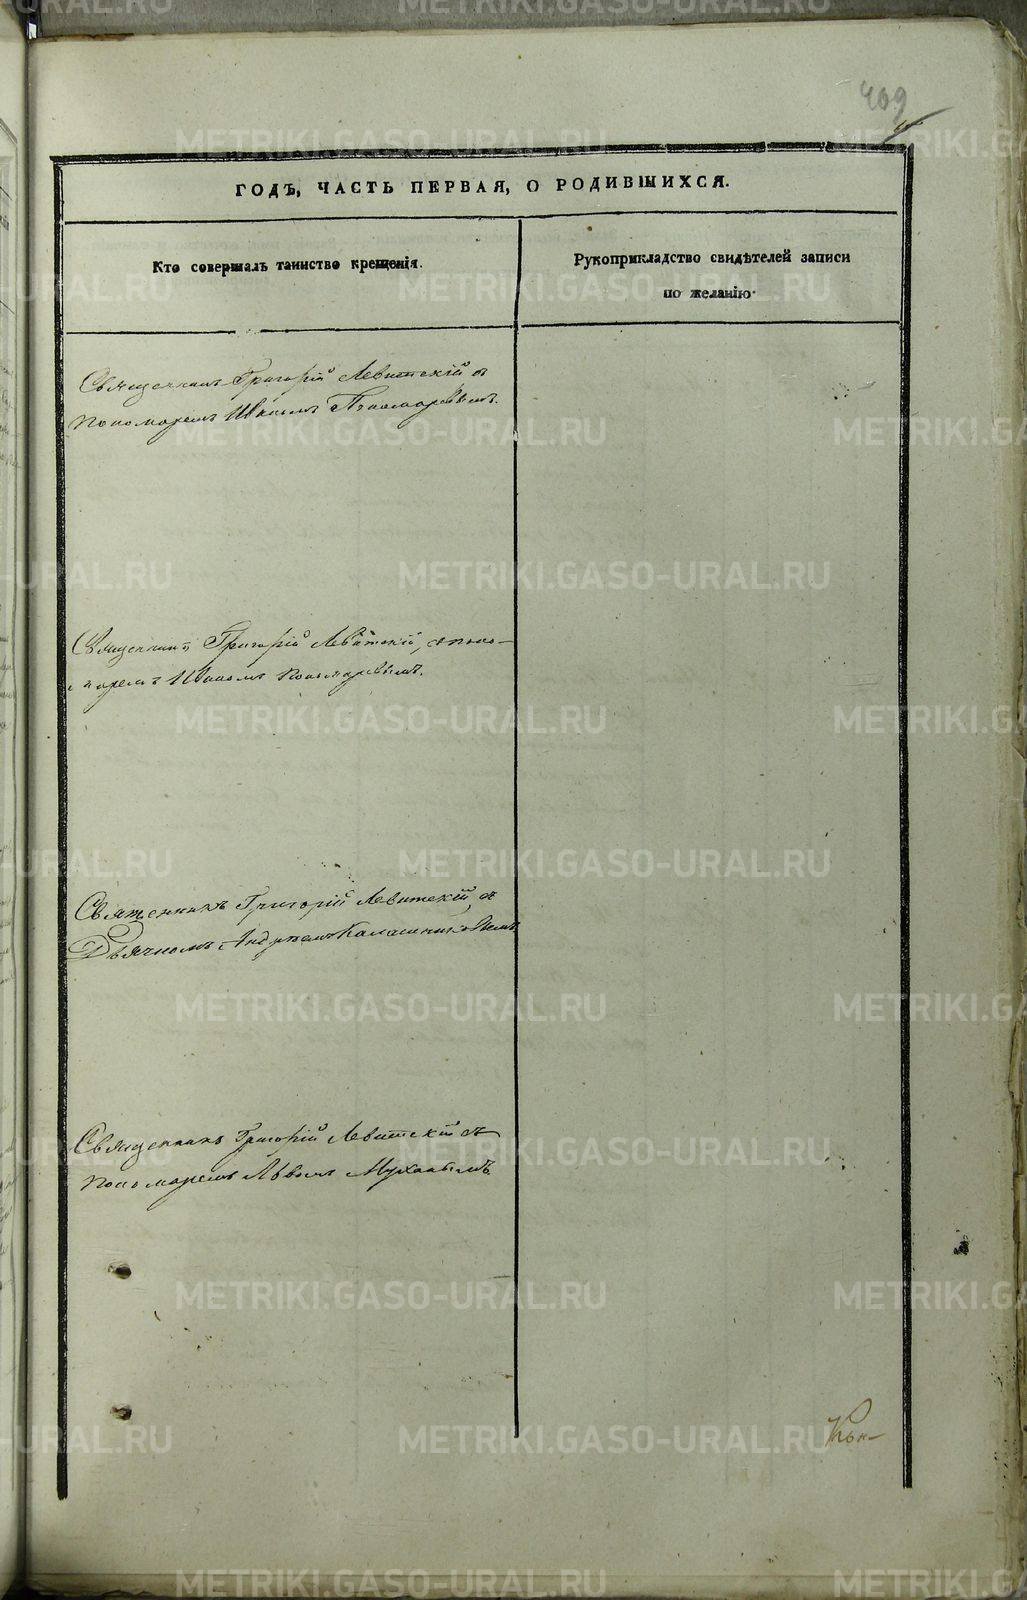 409
ГОДЪ, ЧАСТЬ ПЕРВАЯ, О РОДИВШИХСЯ.
Кто совершалъ таинство крещенія.
Рукоприкладство свидѣтелей записи
по желанію.
Священникъ Григорій Левитскій съ
пономаремъ Иваномъ Пономаревымъ.
Священникъ Григорій Левитскій, съ поно-
маремъ Иваномъ Пономаревымъ.
Священникъ Григорій Левитскій, съ
Дьячкомъ Андреемъ Калашниковымъ
Священникъ Григорій Левитскій съ
пономаремъ Львомъ
METRIKI.GASO-URAL.RU